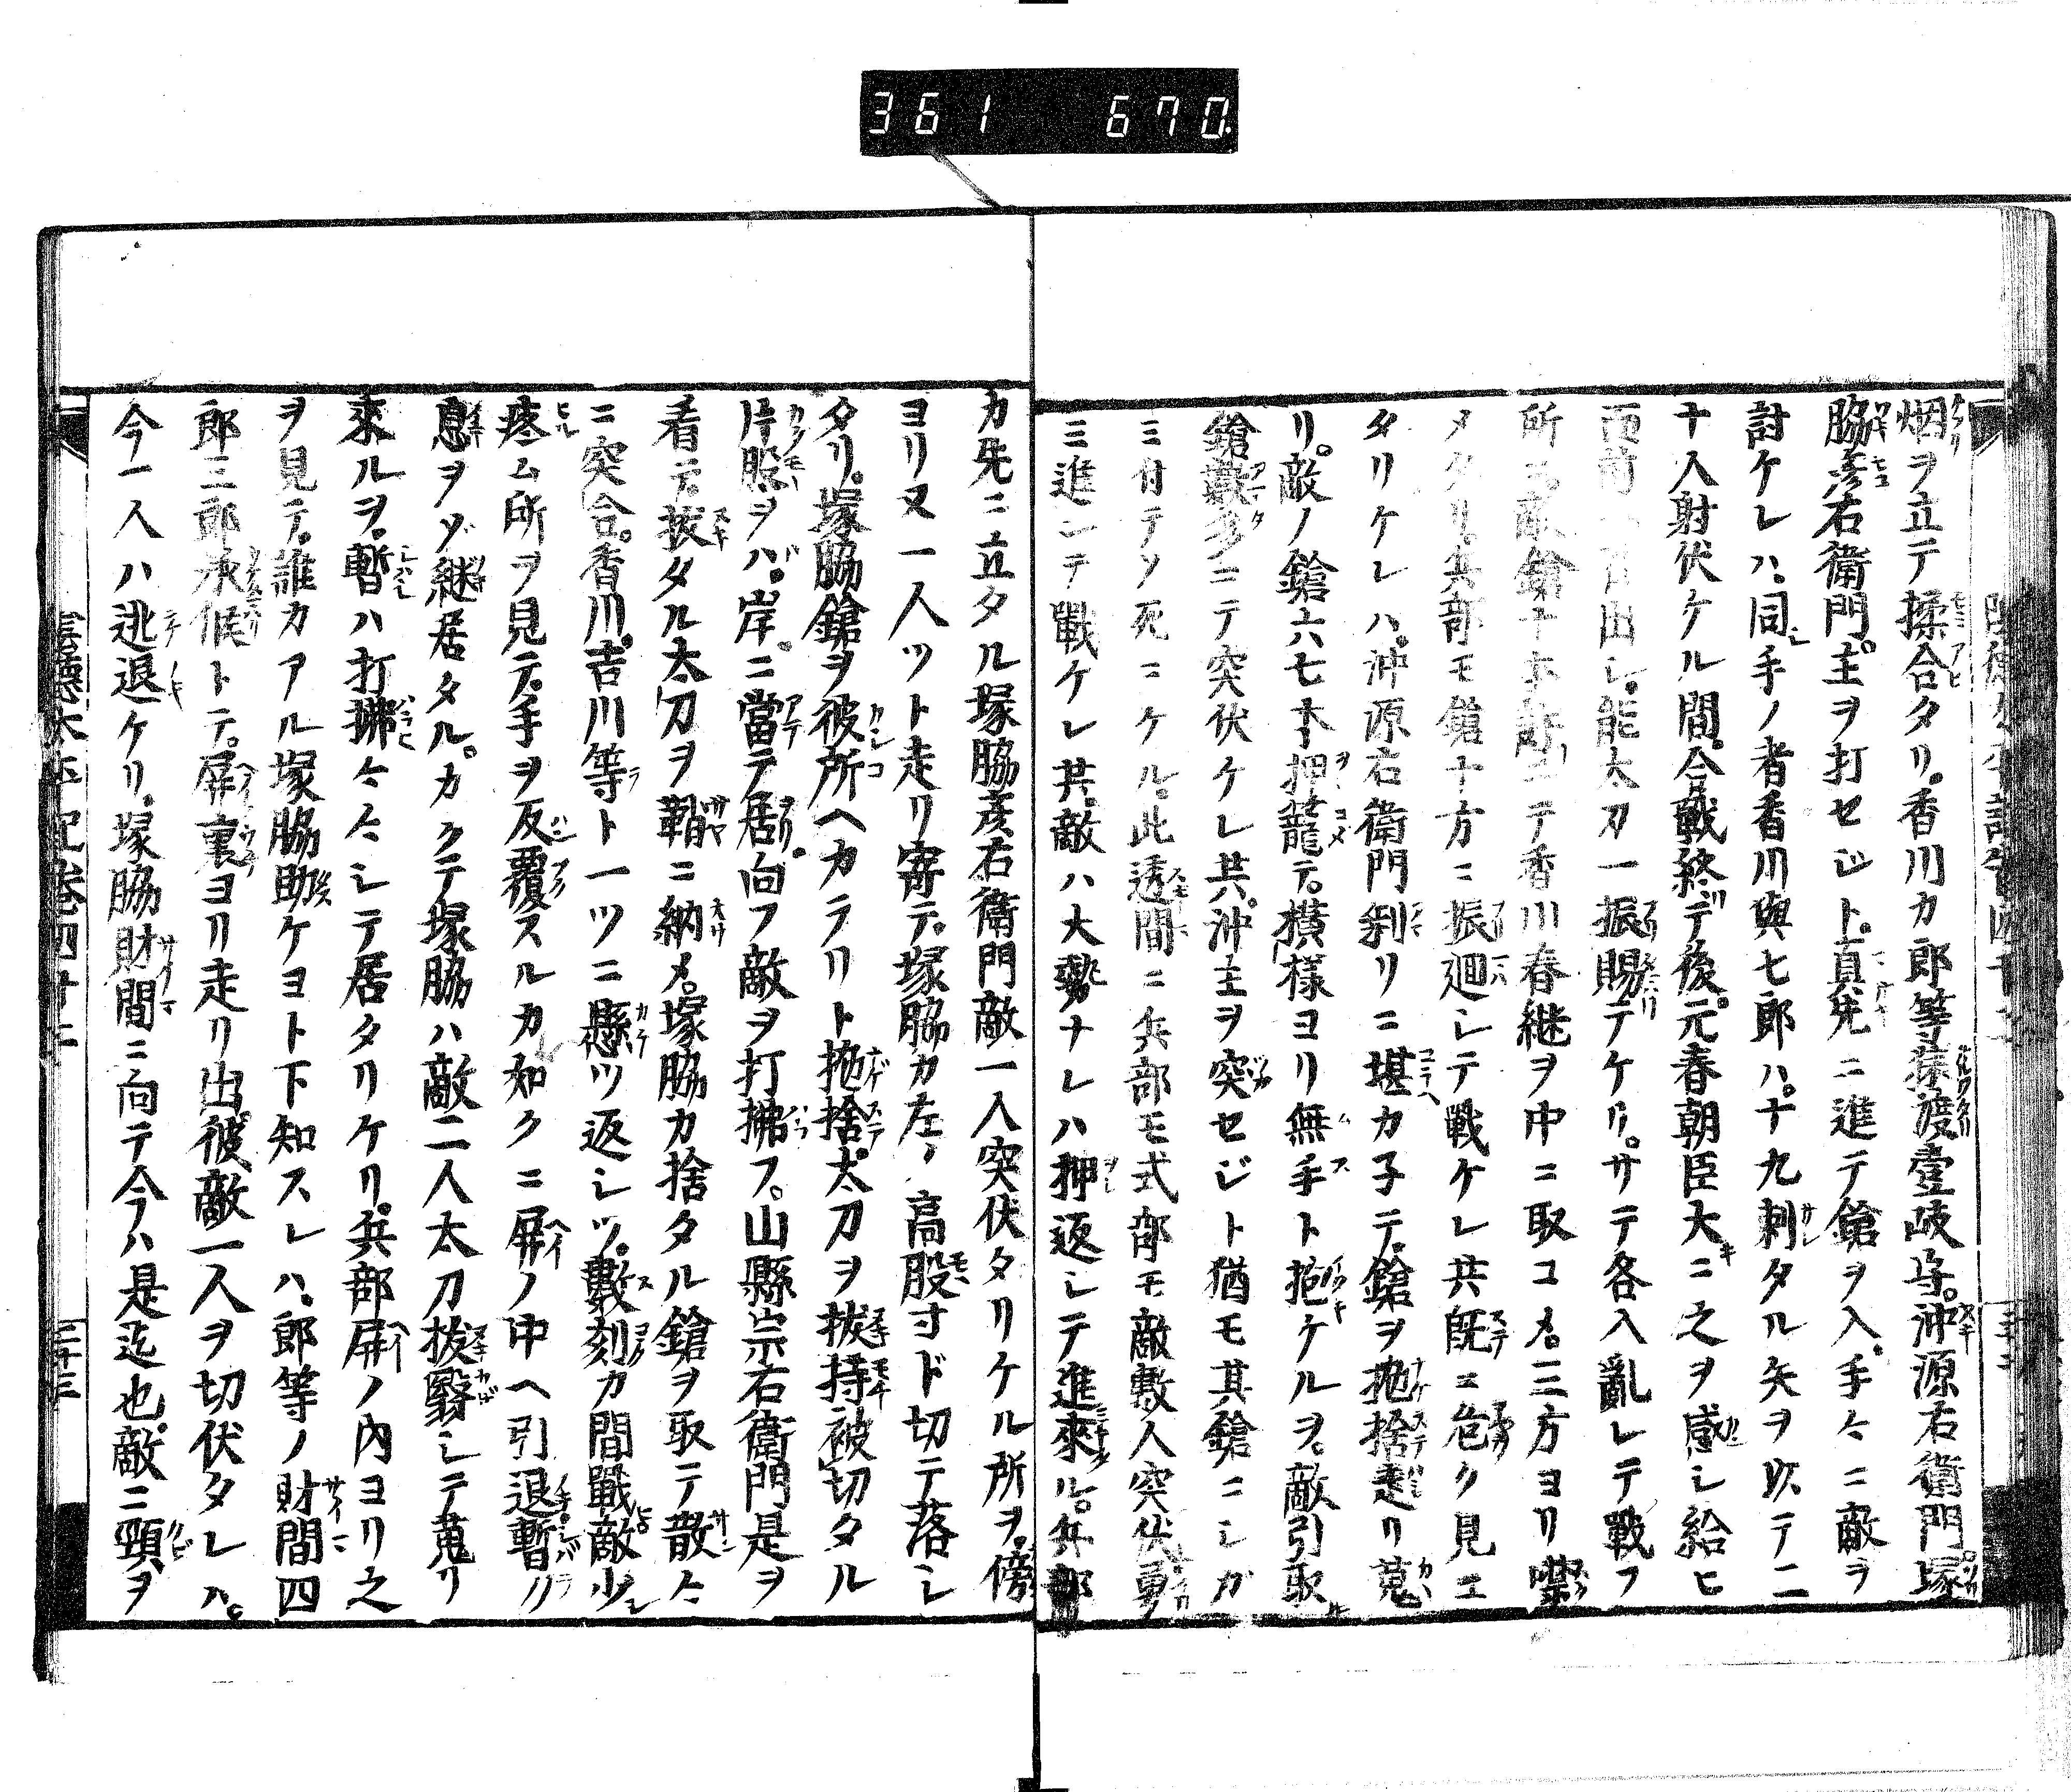 361 670
烟ヲ立テ揉合タリ。香川カ郎等猿渡壹岐守。沖源右衛門。塚
脇彦右衛門。主ヲ打セジト。真先ニ進テ鎗ヲ入。手々ニ敵ヲ
討ケレハ。同手ノ者香川與七郎ハ。十九刺タル矢ヲ以テ二
十人射伏ケル間。合戰終テ後。元春朝臣大ニ之ヲ感シ給ヒ
出シ。能太刀一振賜テケリ。サテ各入亂レテ戰フ
所ニ敵鎗十本許ニテ香川春継ヲ中ニ取コメ。三方ヨリ
メタリ。兵部モ鎗十方ニ振廻シテ戰ケレ共既ニ危ク見エ
タリケレハ。沖源右衛門刺リニ堪カ子テ。鎗ヲ抛捨走リ蒐
リ。敵ノ鎗六七本押籠テ。横様ヨリ無手ト抱ケルヲ。敵引取
鎗數多ニテ突伏ケレ共。沖主ヲ突セジト猶モ其鎗ニシガ
ミ付テソ死ニケル。此透間ニ兵部モ式部モ敵數人突伏勇
ミ進ンテ戰ケレ共。敵ハ大勢ナレハ押返シテ進來ル。兵部
カ先ニ立タル塚脇彦右衛門敵一人突伏タリケル所ヲ。傍
ヨリ又一人ツト走リ寄テ。塚脇カ左ノ高股寸ド切テ落シ
タリ。塚脇鎗ヲ彼所ヘカラリト抛捨。太刀ヲ拔持被切タル
片股ヲハ。岸ニ當テ居。向フ敵ヲ打拂フ。山縣宗右衛門是ヲ
看テ。拔タル太刀ヲ鞘ニ納メ。塚脇カ捨タル鎗ヲ取テ散々
ニ突合。香川。吉川等ト一ツニ懸ツ返シツ。數刻カ間戰敵少
疼ム所ヲ見テ。手ヲ反覆スルカ如クニ屏ノ中ヘ引退暫
息ヲソ継居タル。カクテ塚脇ハ敵二人太刀拔翳シテ蒐リ
來ルヲ。暫ハ打拂々々シテ居タリケリ。兵部屏ノ内ヨリ之
ヲ見テ。誰カアル塚脇助ケヨト下知スレハ。郎等ノ財間四
郎三郎承候トテ。屏裏ヨリ走リ出。彼敵一人ヲ切伏タレハ。
今一人ハ逃退ケリ。塚脇財間ニ向テ今ハ是迄也。敵ニ頸ヲ
太平記巻四十二
三十三